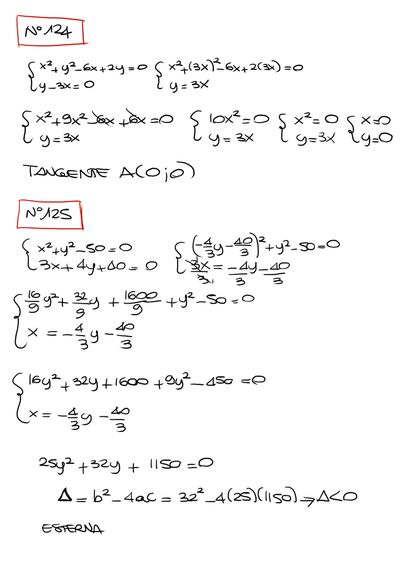 N°124
{x²+y²-6x+2y=0 {x²+(3x)²-6x+2(3x)=0
{y-3x=0 {y=3x
{x²+9x²-6x+6x=0 {10x²=0 {x²=0 {x=0
{y=3x {y=3x {y=3x {y=0
TANGENTE A(0;0)
N°125
{x²+y²-50=0 {(-4/3y-40/3)²+y²-50=0
{3x+4y+40=0 {3x/3=-4y-40/3
{16/9y²+32/9y+1600/9+y²-50=0
{x=-4/3y-40/3
{16y²+32y+1600+9y²-450=0
{x=-4/3y-40/3
25y²+32y+1150=0
Δ=b²-4ac=32²-4(25)(1150)→Δ<0
ESTERNA